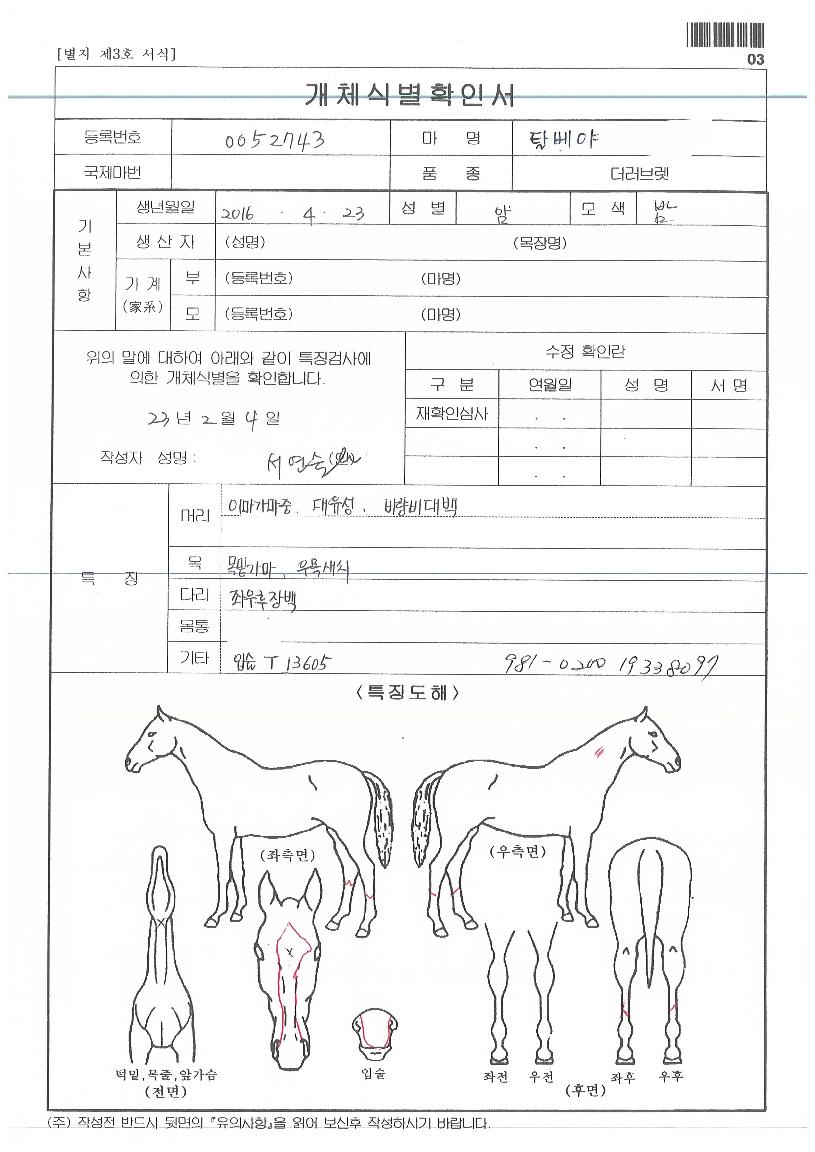 [별지 제3호 서식]
03
개체식별확인서
등록번호 0052743 마 명 탈베야
국제마번 품 종 더러브렛
기본사항
생년월일 2016 . 4 . 23 성 별 암 모 색 밤
생 산 자 (성명) (목장명)
가 계 (家系)
부 (등록번호) (마명)
모 (등록번호) (마명)
위의 말에 대하여 아래와 같이 특징검사에
의한 개체식별을 확인합니다.
23 년 2 월 4 일
작성자 성명 : 서연슬
수정 확인란
구 분 연월일 성 명 서 명
재확인심사 . .
. .
. .
특 징
머리 이마가마중. 대유성. 비량비대백
목 목밑가마,
다리 좌우후장백
몸통
기타 입슬 T 13605 981-0200 19338097
<특징도해>
(좌측면) (우측면)
턱밑,목줄,앞가슴
(전면)
입술
좌전 우전 좌후 우후
(후면)
(주) 작성전 반드시 뒷면의 『유의사항』을 읽어 보신후 작성하시기 바랍니다.